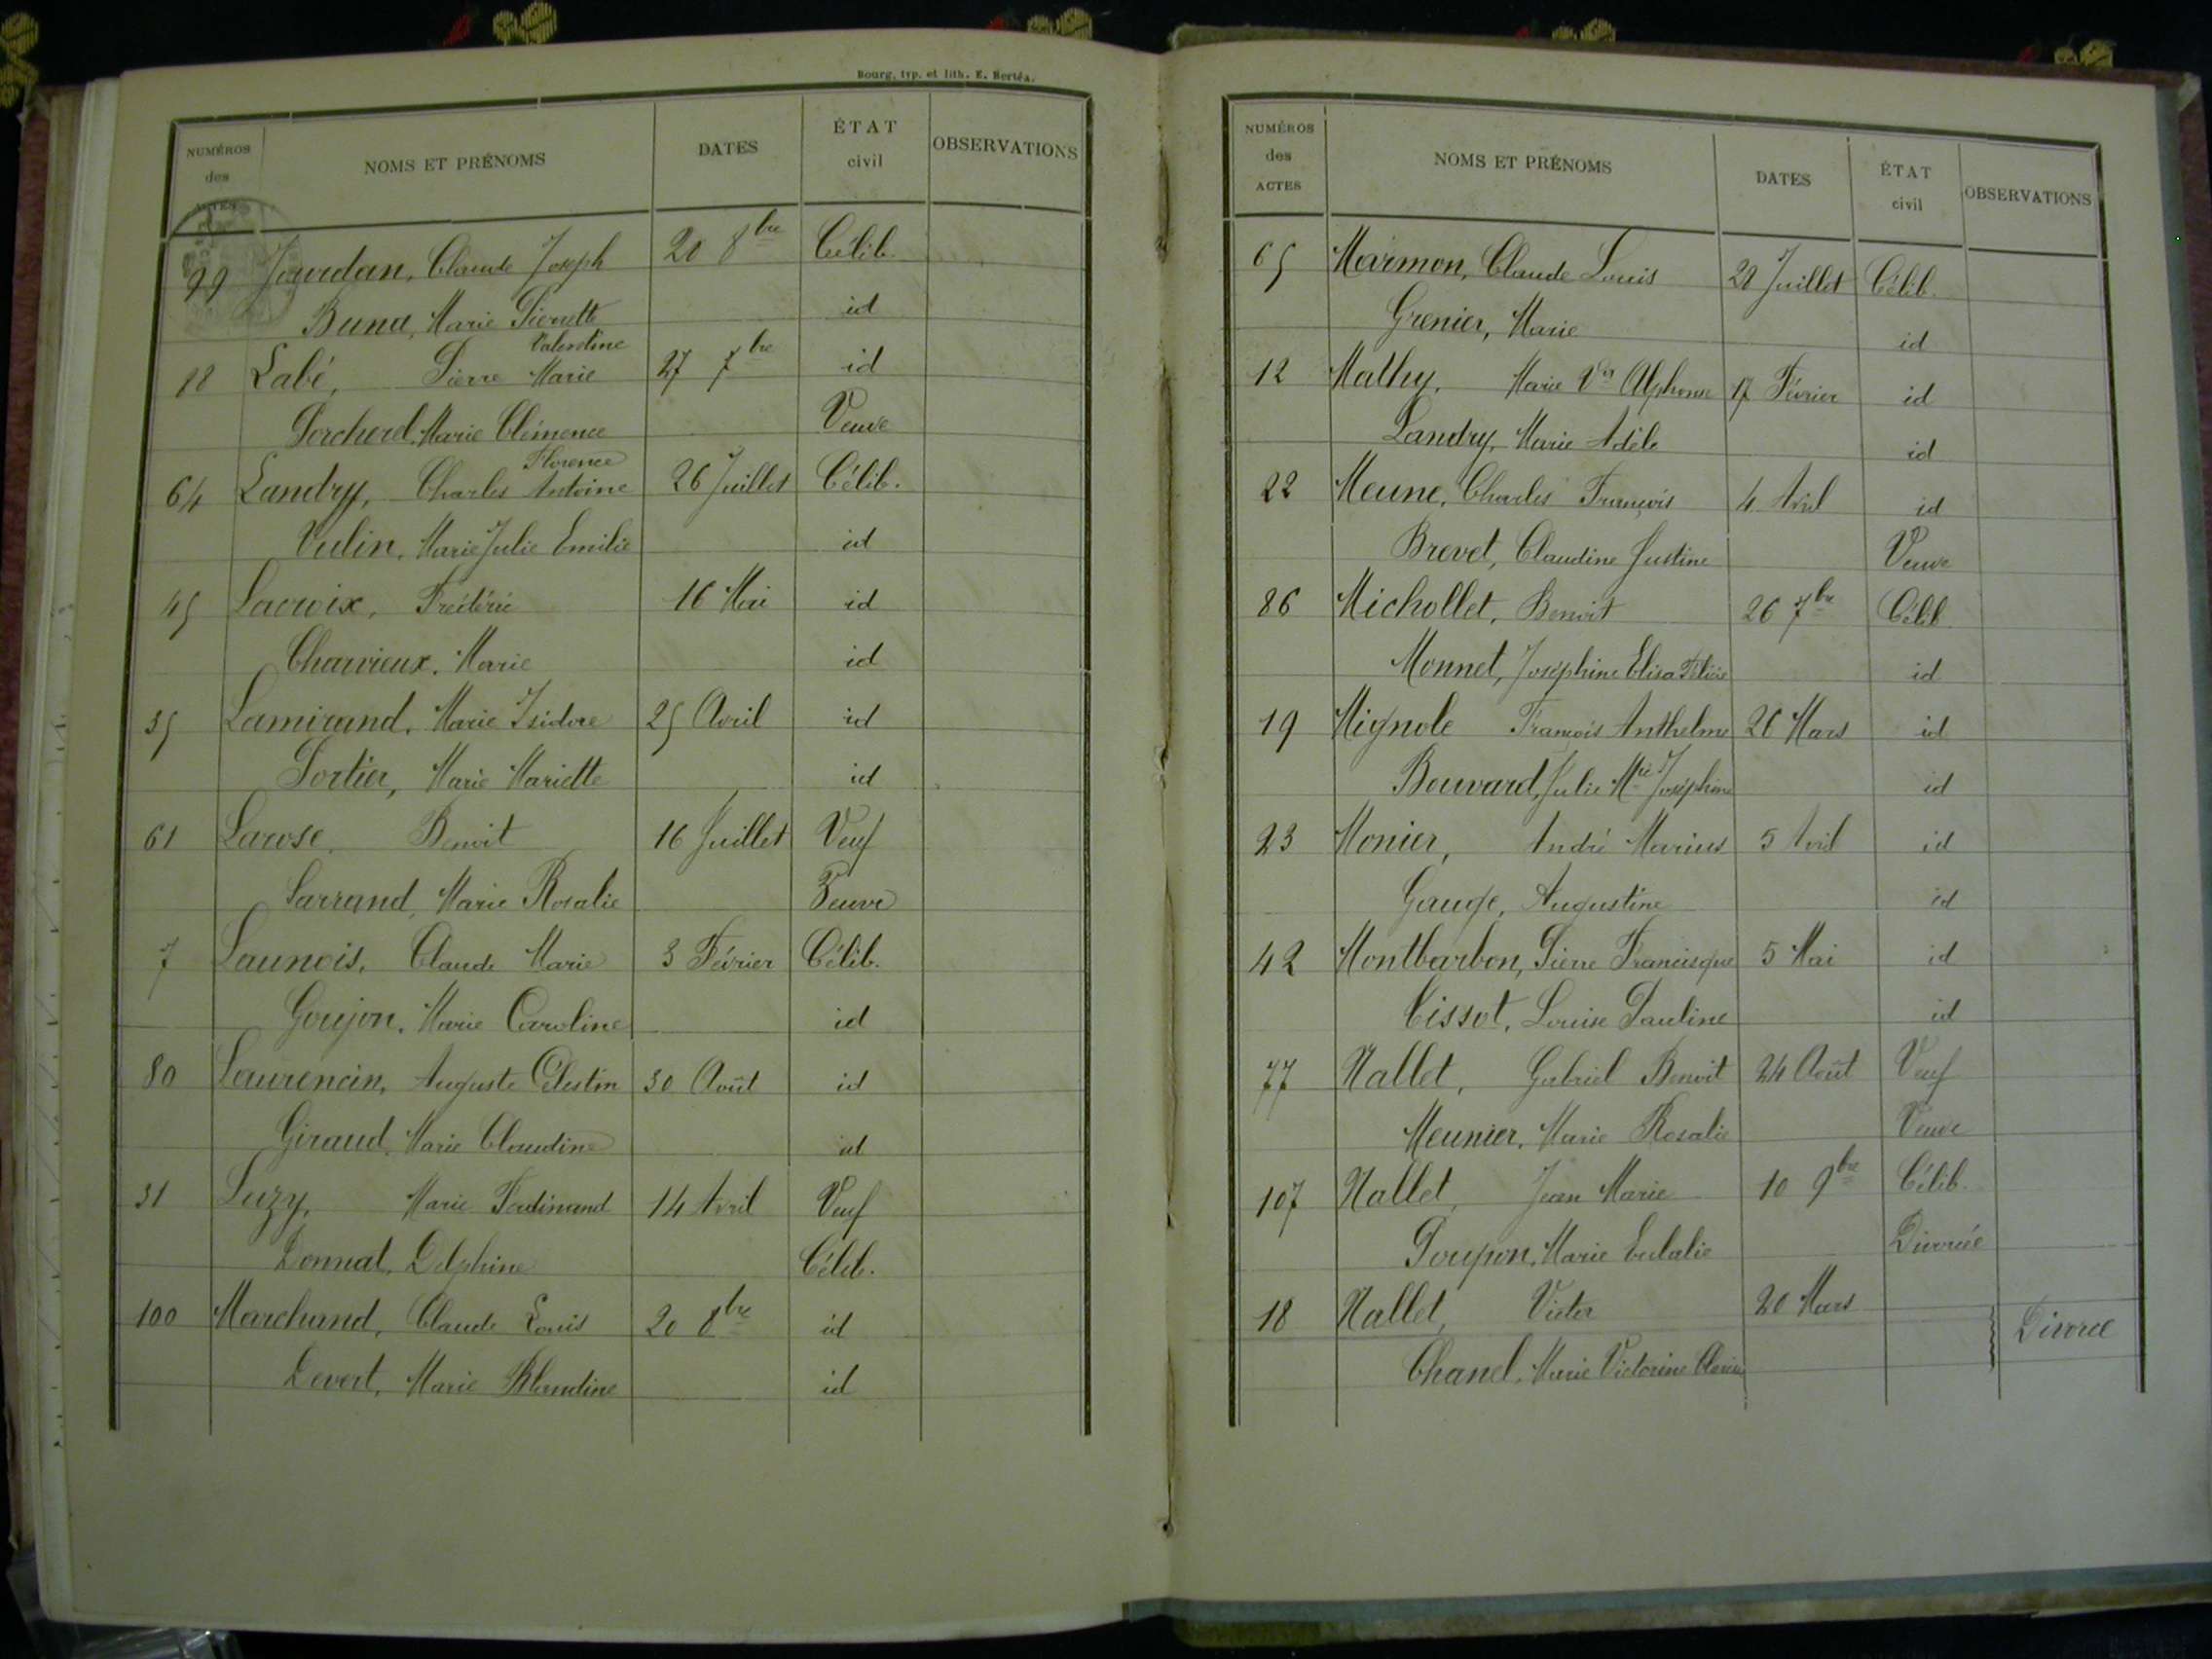 Bourg, typ. et lith. E. Bertéa.
NUMÉROS des ACTES NOMS ET PRÉNOMS DATES ÉTAT civil OBSERVATIONS
99 Jourdan, Claude Joseph 20 8bre Célib.
Buna, Marie Pierrette id
Valentine
88 Labé, Pierre Marie 27 7bre id
Porcherel, Marie Clémence Veuve
Florence
64 Landry, Charles Antoine 26 Juillet Célib.
Vulin, Marie Julie Emilie id
45 Lacroix, Frédéric 16 Mai id
Charvieux, Marie id
35 Lamirand, Marie Isidore 25 Avril id
Portier, Marie Mariette id
61 Larose, Benoit 16 Juillet Veuf
Sarrand, Marie Rosalie Veuve
7 Launois, Claude Marie 3 Février Célib.
Goujon, Marie Caroline id
80 Laurencin, Auguste Célestin 30 Août id
Giraud, Marie Claudine id
31 Luzy, Marie Ferdinand 14 Avril Veuf
Donnat, Delphine Célib.
100 Marchand, Claude Louis 20 8bre id
Devert, Marie Blandine id
NUMÉROS des ACTES NOMS ET PRÉNOMS DATES ÉTAT civil OBSERVATIONS
65 Marmon, Claude Louis 29 Juillet Célib.
Grenier, Marie id
12 Mathy, Marie Vor Alphonse 17 Février id
Landry, Marie Adèle id
22 Meune, Charles François 4 Avril id
Brevet, Claudine Justine Veuve
86 Michollet, Benoit 26 7bre Célib.
Monnet, Joséphine Elisa Félicie id
19 Mignole François Anthelme 26 Mars id
Bouvard, Julie Mrie Joséphine id
23 Monier, André Marius 5 Avril id
Gauge, Augustine id
42 Montbarbon, Pierre Francisque 5 Mai id
Tissot, Louise Pauline id
77 Nallet, Gabriel Benoit 24 Août Veuf
Meunier, Marie Rosalie Veuve
107 Nallet, Jean Marie 10 9bre Célib.
Poupon, Marie Eulalie Divorcée
18 Nallet, Victor 20 Mars Divorce
Chanel, Marie Victorine